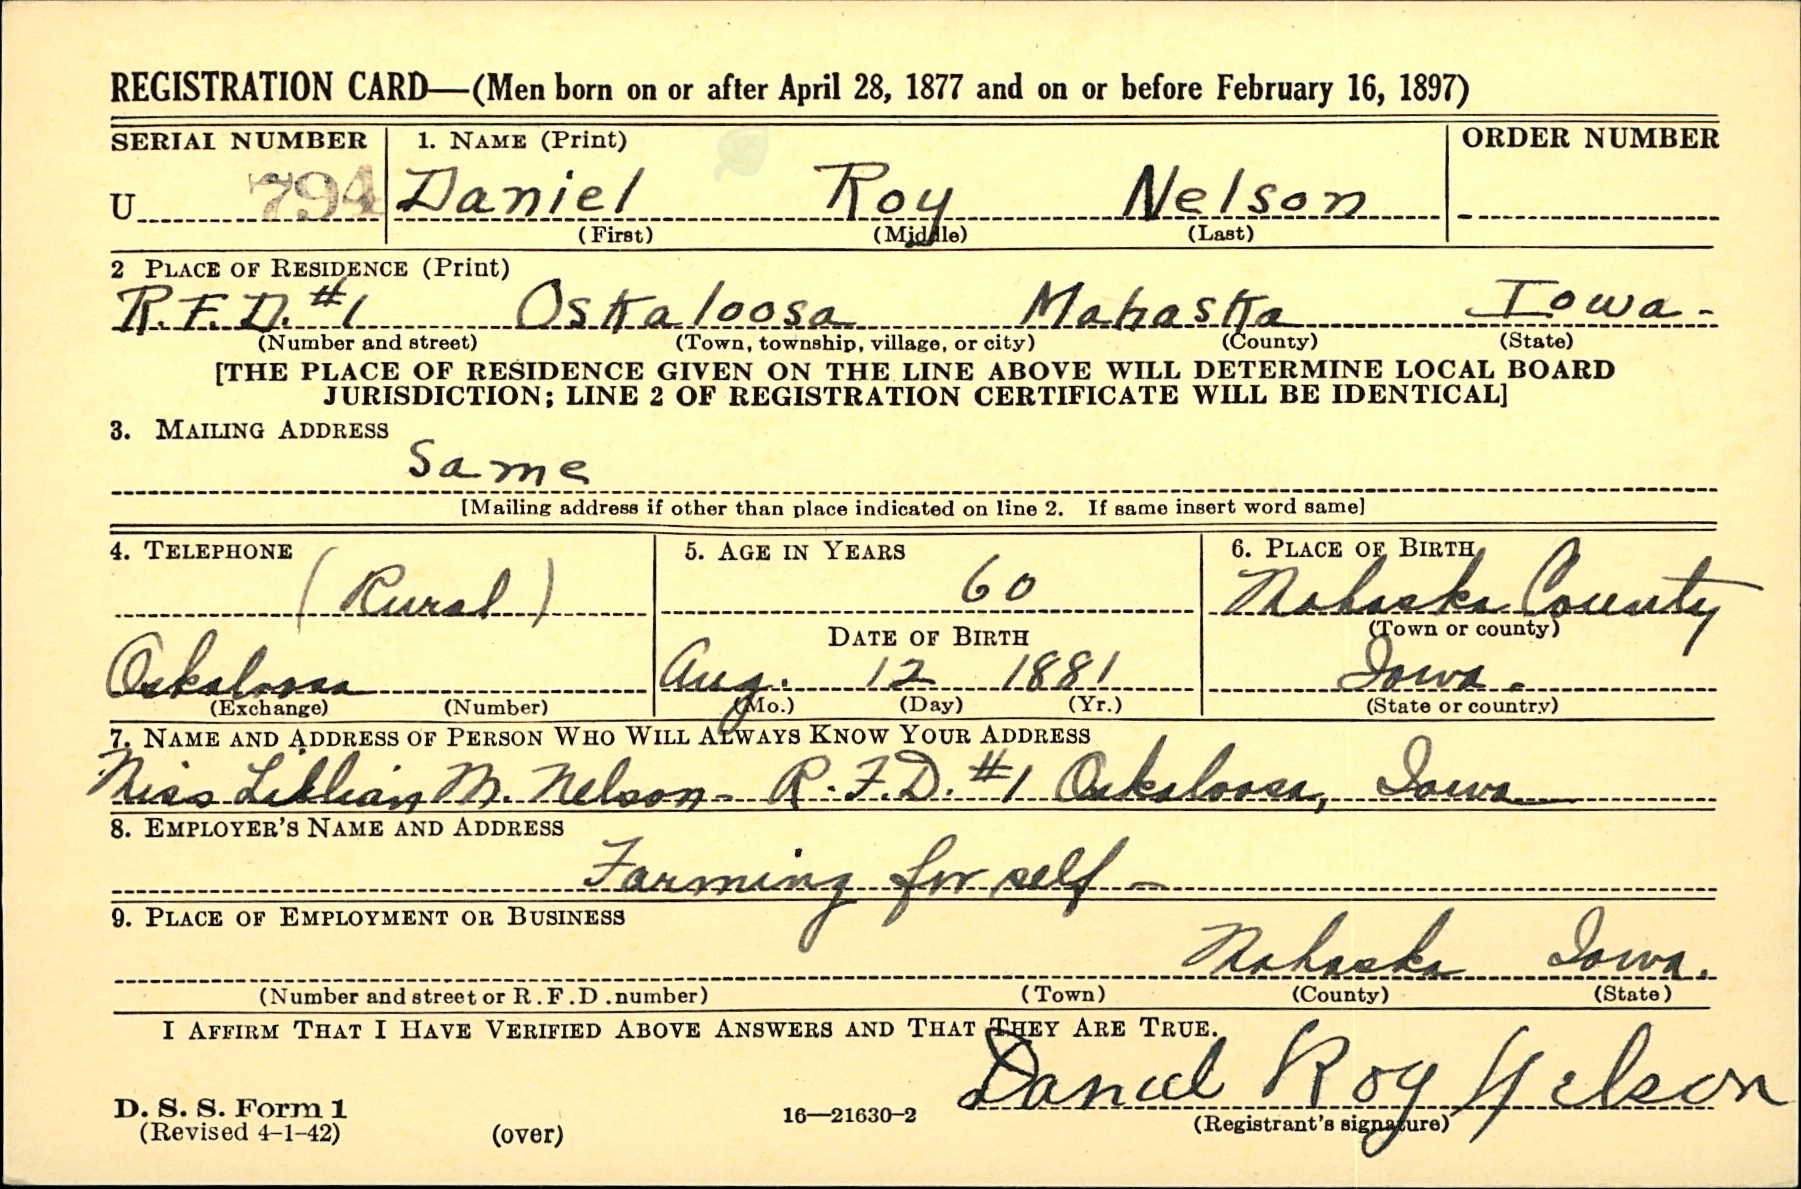 REGISTRATION CARD—(Men born on or after April 28, 1877 and on or before February 16, 1897)
SERIAL NUMBER 1. NAME (Print) ORDER NUMBER
U 794 Daniel Roy Nelson
(First) (Middle) (Last)
2 PLACE OF RESIDENCE (Print)
R.F.D. #1 Oskaloosa Mahaska Iowa-
(Number and street) (Town, township, village, or city) (County) (State)
[THE PLACE OF RESIDENCE GIVEN ON THE LINE ABOVE WILL DETERMINE LOCAL BOARD
JURISDICTION; LINE 2 OF REGISTRATION CERTIFICATE WILL BE IDENTICAL]
3. MAILING ADDRESS
Same
[Mailing address if other than place indicated on line 2. If same insert word same]
4. TELEPHONE 5. AGE IN YEARS 6. PLACE OF BIRTH
(Rural) 60 Mahaska County
DATE OF BIRTH (Town or county)
Oskaloosa Aug. 12 1881 Iowa.
(Exchange) (Number) (Mo.) (Day) (Yr.) (State or country)
7. NAME AND ADDRESS OF PERSON WHO WILL ALWAYS KNOW YOUR ADDRESS
Miss Lillian M. Nelson- R.F.D. #1 Oskaloosa, Iowa
8. EMPLOYER'S NAME AND ADDRESS
Farming for self-
9. PLACE OF EMPLOYMENT OR BUSINESS
Mahaska Iowa.
(Number and street or R.F.D. number) (Town) (County) (State)
I AFFIRM THAT I HAVE VERIFIED ABOVE ANSWERS AND THAT THEY ARE TRUE.
Daniel Roy Nelson
D. S. S. Form 1
(Revised 4-1-42) (over) 16—21630-2 (Registrant's signature)